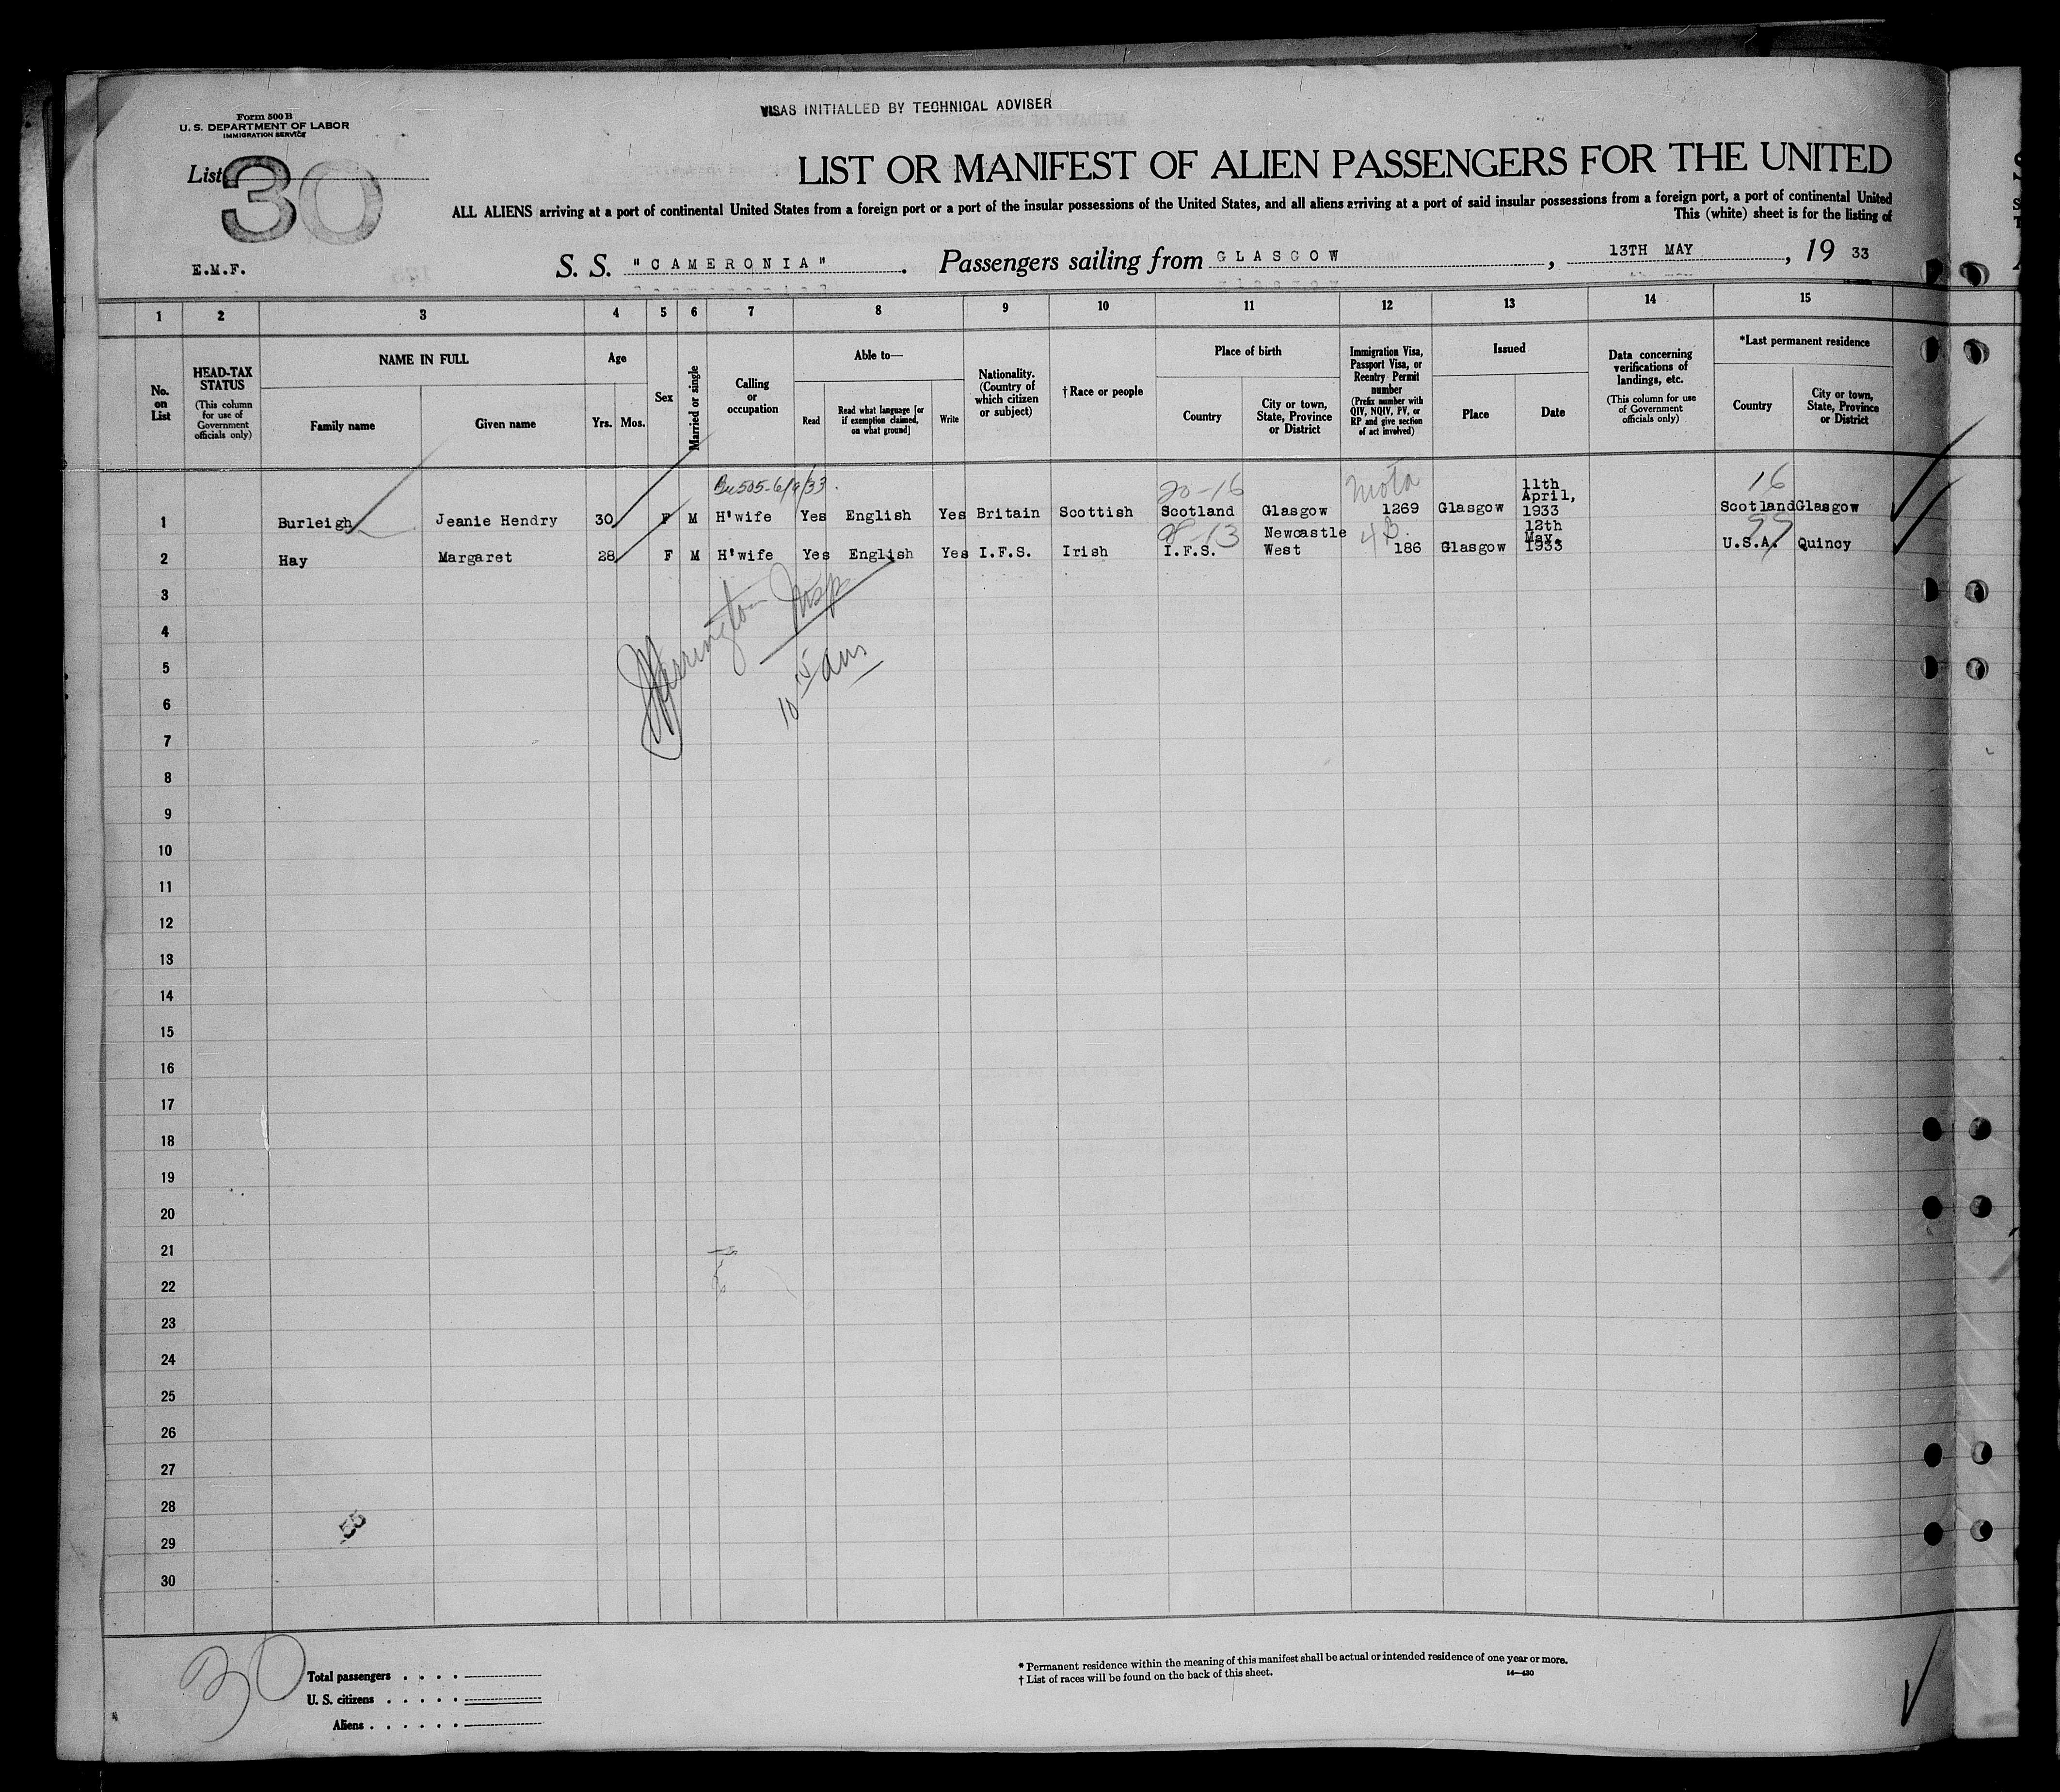 VISAS INITIALLED BY TECHNICAL ADVISER
Form 500 B
U. S. DEPARTMENT OF LABOR
IMMIGRATION SERVICE
List 30
LIST OR MANIFEST OF ALIEN PASSENGERS FOR THE UNITED
ALL ALIENS arriving at a port of continental United States from a foreign port or a port of the insular possessions of the United States, and all aliens arriving at a port of said insular possessions from a foreign port, a port of continental United
This (white) sheet is for the listing of
E.M.F.
S. S. "CAMERONIA". Passengers sailing from GLASGOW, 13TH MAY, 19 33
1 2 3 4 5 6 7 8 9 10 11 12 13 14 15
No. on List
HEAD-TAX STATUS
(This column for use of Government officials only)
NAME IN FULL
Family name
Given name
Age
Yrs. Mos.
Sex
Married or single
Calling or occupation
Able to—
Read
Read what language [or if exemption claimed, on what ground]
Write
Nationality. (Country of which citizen or subject)
† Race or people
Place of birth
Country
City or town, State, Province or District
Immigration Visa, Passport Visa, or Reentry Permit number
(Prefix number with QIV, NQIV, PV, or RP and give section of act involved)
Issued
Place
Date
Data concerning verifications of landings, etc.
(This column for use of Government officials only)
*Last permanent residence
Country
City or town, State, Province or District
505-6/9/33. 20-16 16
1 Burleigh Jeanie Hendry 30 F M H'wife Yes English Yes Britain Scottish Scotland Glasgow 1269 Glasgow 11th April, 1933 Scotland Glasgow
13 4B. 99
2 Hay Margaret 28 F M H'wife Yes English Yes I.F.S. Irish I.F.S. Newcastle West 186 Glasgow 12th May. 1933 U.S.A. Quincy
3
4
5
6
7
8
9
10
11
12
13
14
15
16
17
18
19
20
21
22
23
24
25
26
27
28
55
29
30
30
Total passengers . . . .
U. S. citizens . . . . .
Aliens . . . . . .
* Permanent residence within the meaning of this manifest shall be actual or intended residence of one year or more.
† List of races will be found on the back of this sheet. 14—430